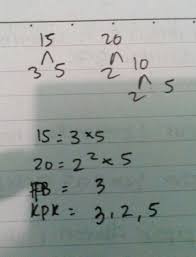 15 20
3 5 2 10
2 5
15 = 3 x 5
20 = 2² x 5
FPB = 3
KPK = 3, 2, 5